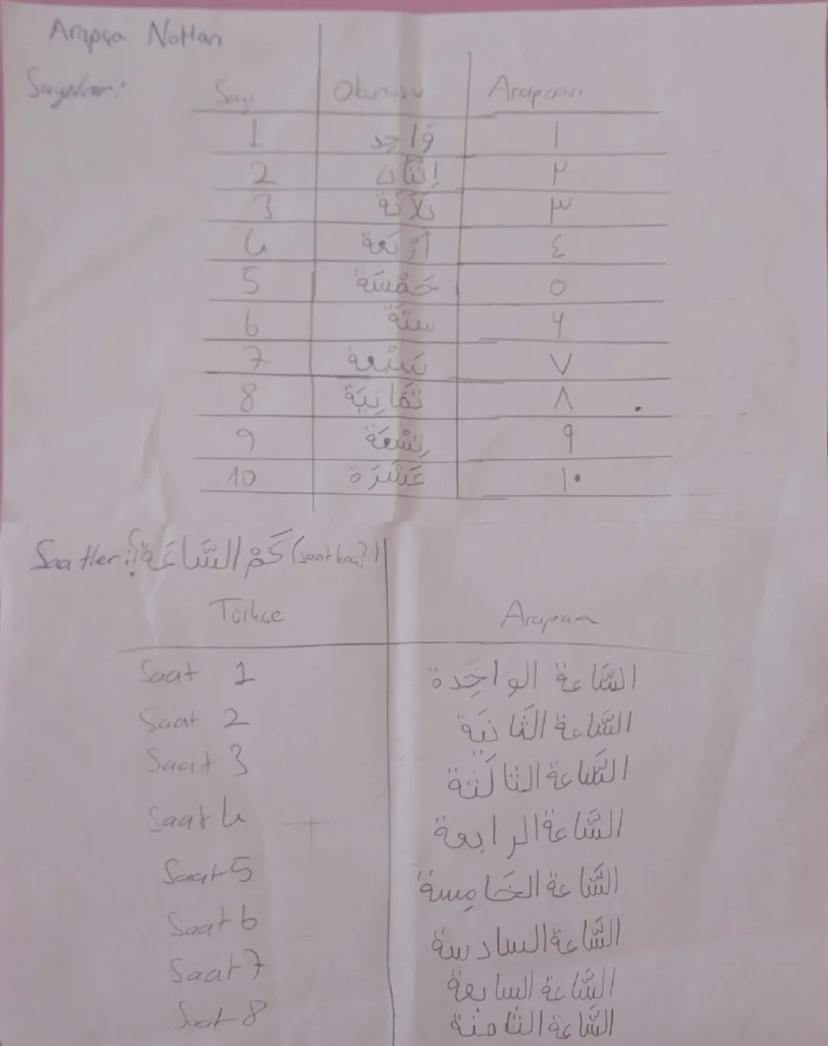 Arapça Notları
Sayılar:
Sayı Okunuşu Arapçası
1 وَاحِد ١
2 اِثْنَان ٢
3 ثَلَاثَة ٣
4 أَرْبَعَة ٤
5 خَمْسَة ٥
6 سِتَّة ٦
7 سَبْعة ٧
8 ثَمَانِيَة ٨
9 تِسْعَة ٩
10 عَشَرَة ١٠
Saatler: كَمْ السَّاعَة؟ (saat kaç?)
Türkce Arapça
Saat 1 السَّاعة الواحِدة
Saat 2 السَّاعة الثَّانيَة
Saat 3 السَّاعة الثالثَة
Saat 4 السَّاعة الرابعة
Saat 5 السَّاعة الخَامِسة
Saat 6 السَّاعة السادسة
Saat 7 السَّاعة السابعة
Saat 8 السَّاعة الثامنة